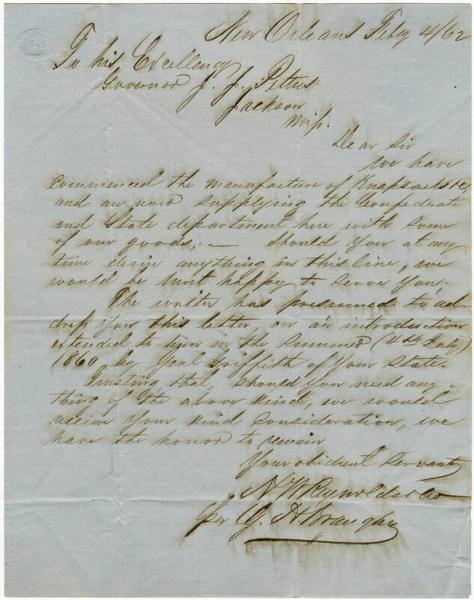 New Orleans Feby 4/62
To his Excellency
Governor J. J. Pettus
Jackson
Miss.
Dear Sir
We have
commenced the manufacture of Knapsacks &c
and are now supplying the Confederate
and State department here with some
of our goods, — Should you at any
time desire anything in this line, we
would be most happy to serve you.
The writer has presumed to ad
dress you this letter, on an introduction
extended to him in the summer (4th July)
1860 by Genl Griffith of your State.
Trusting that, should you need any
thing of the above kind, we would
receive your kind consideration, we
have the honor to remain
Your obedient Servants
Reynolds & Co
per